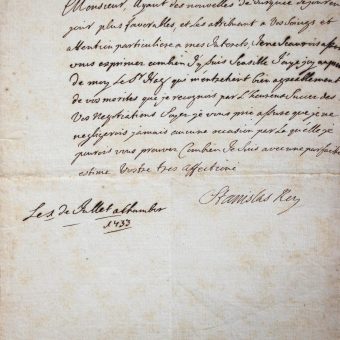 Monsieur, Ayant des nouvelles de Turquie de jour en
jour plus favorables, et les attribuant a vos soings et
attention particuliere a mes Interets, Je ne scaurois assez
vous exprimer combien J'y suis sensible
de moy le Sr qui m'entretient bien agreablement
de vos merites que je reconnois par l'heureux succes de
vos Negotiations Soyez je vous prie assuré que je ne
negligerois jamais aucune occasion par la quelle je
pourois vous prouver Combien Je suis avec une parfaite
estime Vostre tres Affectioné
Stanislas Roy
Le de Juillet a Chambor
1733